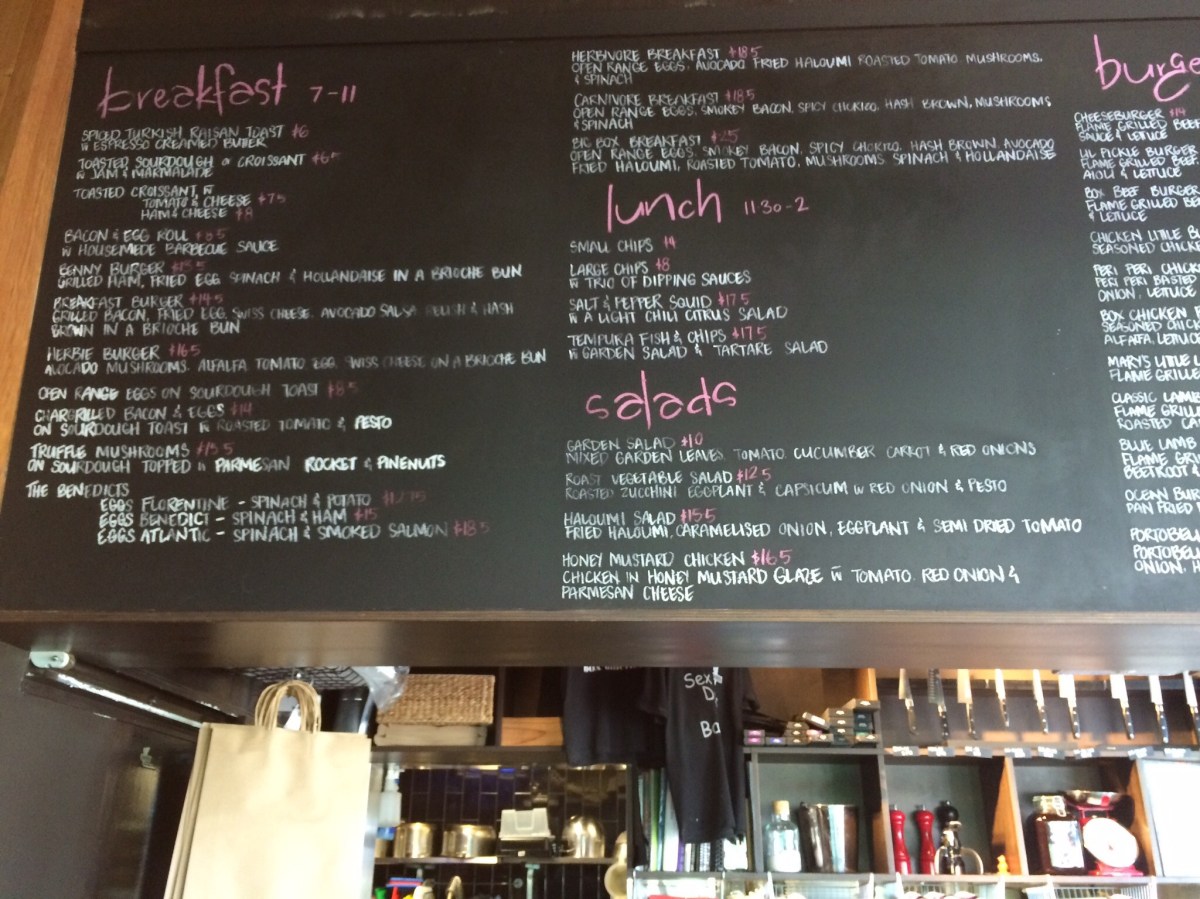 breakfast 7-11
SPICED TURKISH RAISAN TOAST $6
W ESPRESSO CREAMED BUTTER
TOASTED SOURDOUGH or CROISSANT $6.5
W JAM & MARMALADE
TOASTED CROISSANT, W
TOMATO & CHEESE $7.5
HAM & CHEESE $8
BACON & EGG ROLL $8.5
W HOUSEMEDE BARBECUE SAUCE
BENNY BURGER $13.5
GRILLED HAM, FRIED EGG SPINACH & HOLLANDAISE IN A BRIOCHE BUN
BREAKFAST BURGER $14.5
GRILLED BACON, FRIED EGG, SWISS CHEESE, AVOCADO SALSA RELISH & HASH
BROWN IN A BRIOCHE BUN
HERBIE BURGER $16.5
AVOCADO MUSHROOMS, ALFALFA TOMATO EGG SWISS CHEESE ON A BRIOCHE BUN
OPEN RANGE EGGS ON SOURDOUGH TOAST $8.5
CHARGRILLED BACON & EGGS $14
ON SOURDOUGH TOAST W ROASTED TOMATO & PESTO
TRUFFLE MUSHROOMS $15.5
ON SOURDOUGH TOPPED W PARMESAN ROCKET & PINENUTS
THE BENEDICTS
EGGS FLORENTINE - SPINACH & POTATO
EGGS BENEDICT - SPINACH & HAM $15
EGGS ATLANTIC - SPINACH & SMOKED SALMON $18.5
HERBIVORE BREAKFAST $18.5
OPEN RANGE EGGS, AVOCADO FRIED HALOUMI ROASTED TOMATO, MUSHROOMS,
& SPINACH
CARNIVORE BREAKFAST $18.5
OPEN RANGE EGGS, SMOKEY BACON, SPICY CHORIZO, HASH BROWN, MUSHROOMS
& SPINACH
BIG BOX BREAKFAST $25
OPEN RANGE EGGS, SMOKEY BACON, SPICY CHORIZO, HASH BROWN, AVOCADO
FRIED HALOUMI, ROASTED TOMATO, MUSHROOMS SPINACH & HOLLANDAISE
lunch 11:30-2
SMALL CHIPS $4
LARGE CHIPS $8
W TRIO OF DIPPING SAUCES
SALT & PEPPER SQUID $17.5
W A LIGHT CHILI CITRUS SALAD
TEMPURA FISH & CHIPS $17.5
W GARDEN SALAD & TARTARE SALAD
salads
GARDEN SALAD $10
MIXED GARDEN LEAVES, TOMATO, CUCUMBER CARROT & RED ONIONS
ROAST VEGETABLE SALAD $12.5
ROASTED ZUCCHINI EGGPLANT & CAPSICUM W RED ONION & PESTO
HALOUMI SALAD $15.5
FRIED HALOUMI, CARAMELISED ONION, EGGPLANT & SEMI DRIED TOMATO
HONEY MUSTARD CHICKEN $16.5
CHICKEN IN HONEY MUSTARD GLAZE W TOMATO, RED ONION &
PARMESAN CHEESE
burge
CHEESEBURGER $14
FLAME GRILLED BEEF
SAUCE & LETTUCE
LIL PICKLE BURGER
FLAME GRILLED BEEF
AIOLI & LETTUCE
BOX BEEF BURGER
FLAME GRILLED BEE
& LETTUCE
CHICKEN LITTLE BU
SEASONED CHICK
PERI PERI CHICK
PERI PERI BASTED
ONION, LETTUCE
BOX CHICKEN B
SEASONED CHIC
ALFALFA, LETTUCE
MARY'S LITTLE L
FLAME GRILLE
CLASSIC LAMB
FLAME GRILL
ROASTED CA
BLUE LAMB
FLAME GRI
BEETROOT &
OCEAN BUR
PAN FRIED
PORTOBELL
PORTOBELL
ONION, H
Sex
D
Ba